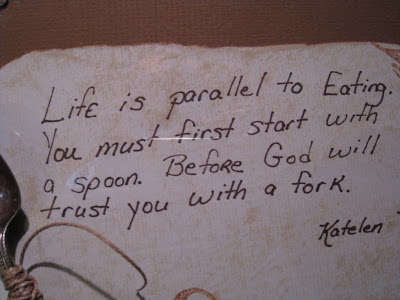 Life is parallel to Eating.
You must first start with
a spoon. Before God will
trust you with a fork.
Katelen